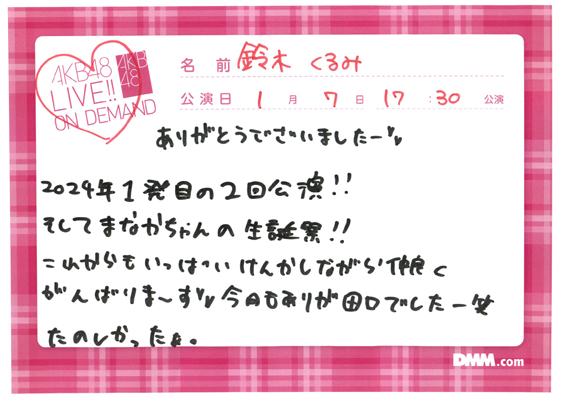 AKB48
LIVE!!
ON DEMAND
AKB
48
名 前 鈴木 くるみ
公演日 1 月 7 日 17 : 30 公演
ありがとうございましたー
2024年1発目の2回公演!!
そしてまなかちゃんの生誕祭!!
これからもいっぱいけんかしながら仲良く
がんばりま〜す 今日もありが田口でしたー笑
たのしかったよ。
DMM.com